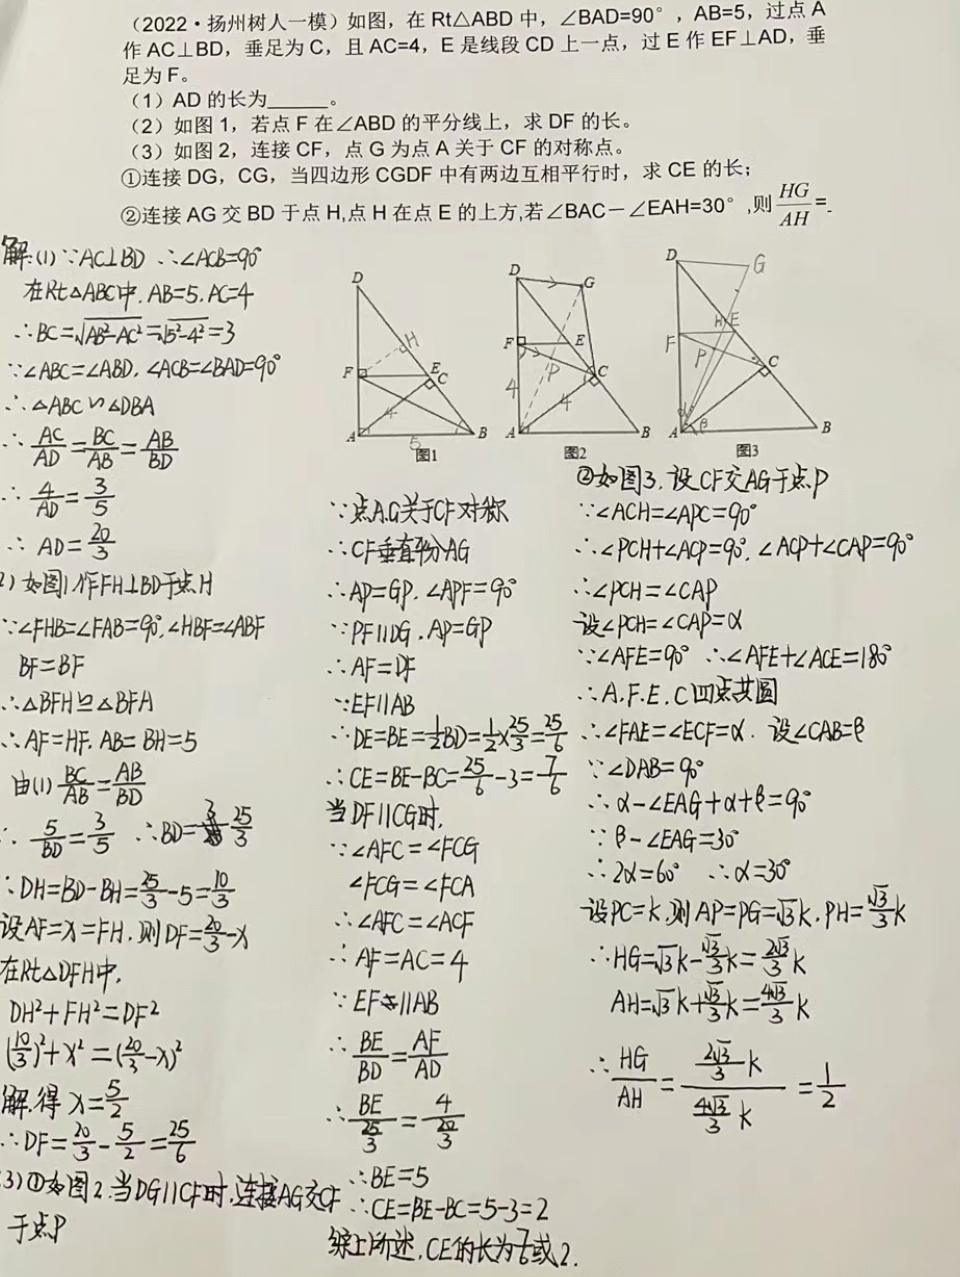 （2022·扬州树人一模）如图，在 Rt△ABD 中，∠BAD=90°，AB=5，过点 A
作 AC⊥BD，垂足为 C，且 AC=4，E 是线段 CD 上一点，过 E 作 EF⊥AD，垂
足为 F。
（1）AD 的长为______。
（2）如图 1，若点 F 在∠ABD 的平分线上，求 DF 的长。
（3）如图 2，连接 CF，点 G 为点 A 关于 CF 的对称点。
①连接 DG，CG，当四边形 CGDF 中有两边互相平行时，求 CE 的长；
②连接 AG 交 BD 于点 H,点 H 在点 E 的上方,若∠BAC－∠EAH=30°,则 HG/AH =_
解:(1) ∵AC⊥BD ∴∠ACB=90°
在Rt△ABC中, AB=5, AC=4
∴BC=√(AB²-AC²)=√(5²-4²)=3
∵∠ABC=∠ABD, ∠ACB=∠BAD=90°
∴△ABC∽△DBA
∴ AC/AD = BC/AB = AB/BD
∴ 4/AD = 3/5
∴ AD= 20/3
2) 如图1,作FH⊥BD于点H
∵∠FHB=∠FAB=90°,∠HBF=∠ABF
BF=BF
∴△BFH≌△BFA
∴AF=HF, AB=BH=5
由(1) BC/AB = AB/BD
∴ 5/BD = 3/5 ∴BD= 25/3
∴DH=BD-BH= 25/3 -5= 10/3
设AF=x=FH, 则DF= 20/3 -x
在Rt△DFH中,
DH²+FH²=DF²
(10/3)²+x²=(20/3-x)²
解得 x= 5/2
∴DF= 20/3 - 5/2 = 25/6
3)①如图2,当DG∥CF时,连接AG交CF
于点P
D
F
H
E
C
A
4
5
B
图1
D
G
F
E
P
C
4
4
A
B
图2
D
G
F
H
E
P
C
α
β
A
B
图3
∵点A,G关于CF对称
∴CF垂直平分AG
∴AP=GP, ∠APF=90°
∵PF∥DG, AP=GP
∴AF=DF
∵EF∥AB
∴DE=BE= 1/2 BD= 1/2 × 25/3 = 25/6
∴CE=BE-BC= 25/6 -3= 7/6
当DF∥CG时,
∵∠AFC=∠FCG
∠FCG=∠FCA
∴∠AFC=∠ACF
∴AF=AC=4
∵EF∥AB
∴ BE/BD = AF/AD
∴ BE/(25/3) = 4/(20/3)
∴BE=5
∴CE=BE-BC=5-3=2
综上所述, CE的长为7/6或2.
②如图3,设CF交AG于点P
∵∠ACH=∠APC=90°
∴∠PCH+∠ACP=90°, ∠ACP+∠CAP=90°
∴∠PCH=∠CAP
设∠PCH=∠CAP=α
∵∠AFE=90° ∴∠AFE+∠ACE=180°
∴A,F,E,C四点共圆
∴∠FAE=∠ECF=α, 设∠CAB=β
∵∠DAB=90°
∴ α-∠EAG+α+β=90°
∵ β-∠EAG=30°
∴2α=60° ∴α=30°
设PC=k,则AP=PG=√3k, PH= √3/3 k
∴HG=√3k- √3/3 k= 2√3/3 k
AH=√3k+ √3/3 k= 4√3/3 k
∴ HG/AH = (2√3/3 k)/(4√3/3 k) = 1/2